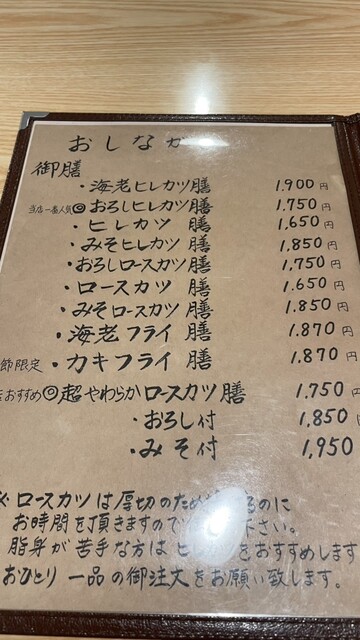 おしなが
御膳
・海老ヒレカツ膳 1.900円
当店一番人気◎おろしヒレカツ膳 1.750円
・ヒレカツ 膳 1.650円
・みそヒレカツ膳 1.850円
・おろしロースカツ膳 1.750円
・ロースカツ 膳 1.650円
・みそロースカツ膳 1.850円
・海老フライ 膳 1.870円
節限定・カキフライ 膳 1.870円
おすすめ◎超やわらかロースカツ膳 1.750円
・おろし付 1,850円
・みそ付 1,950
※ロースカツは厚切のため るのに
お時間を頂きますので 下さい。
脂身が苦手な方はヒレ をおすすめします
おひとり一品の御注文をお願い致します。